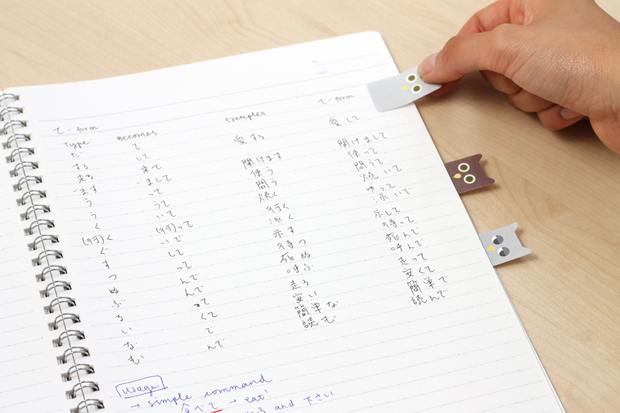 て-form
Type Becomes Examples て-form
る て
する して 愛する 愛して
来る 来て
ます -まして 聞けます 聞けまして
う って 使う 使って
う うて 問う 問うて
く いて 焼く 焼いて
(行)く (行)って 行く 行って
ぐ いで 泳ぐ 泳いで
す して 示す 示して
つ って 待つ 待って
ぬ んで 死ぬ 死んで
ぶ んで 呼ぶ 呼んで
る って 走る 走って
い くて 安い 安くて
な で 簡単な 簡単で
む んで 読む 読んで
Usage
→ simple command
食べて → 'eat'
and 下さい